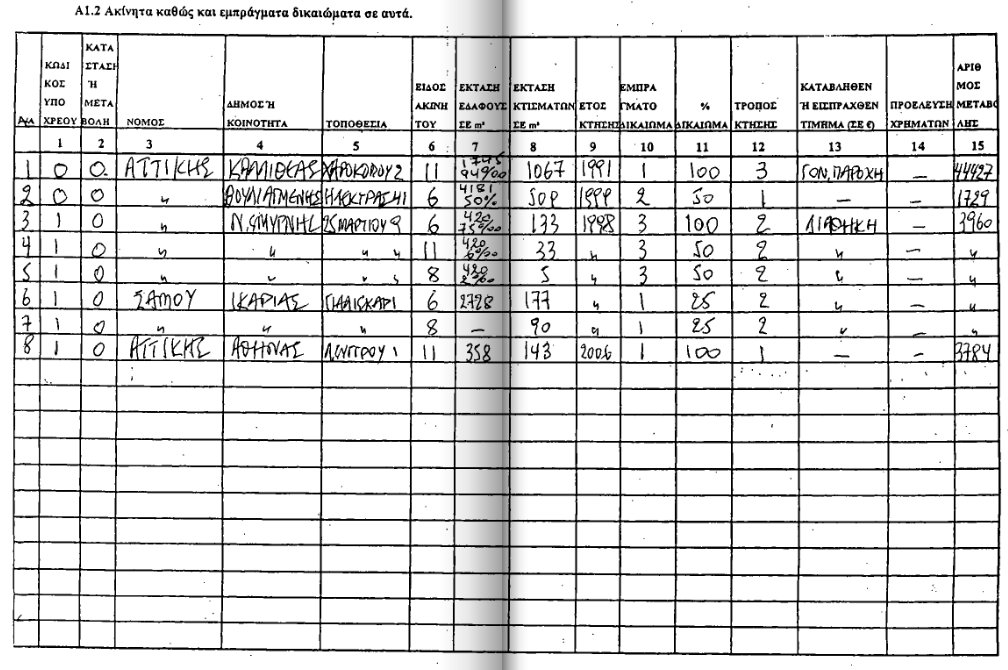 Α1.2 Ακίνητα καθώς και εμπράγματα δικαιώματα σε αυτά.
Α/Α ΚΩΔΙΚΟΣ ΥΠΟΧΡΕΟΥ ΚΑΤΑΣΤΑΣΗ Ή ΜΕΤΑΒΟΛΗ ΝΟΜΟΣ ΔΗΜΟΣ Ή ΚΟΙΝΟΤΗΤΑ ΤΟΠΟΘΕΣΙΑ ΕΙΔΟΣ ΑΚΙΝΗΤΟΥ ΕΚΤΑΣΗ ΕΔΑΦΟΥΣ ΣΕ m² ΕΚΤΑΣΗ ΚΤΙΣΜΑΤΩΝ ΣΕ m² ΕΤΟΣ ΚΤΗΣΗΣ ΕΜΠΡΑΓΜΑΤΟ ΔΙΚΑΙΩΜΑ % ΔΙΚΑΙΩΜΑ ΤΡΟΠΟΣ ΚΤΗΣΗΣ ΚΑΤΑΒΛΗΘΕΝ Ή ΕΙΣΠΡΑΧΘΕΝ ΤΙΜΗΜΑ (ΣΕ €) ΠΡΟΕΛΕΥΣΗ ΧΡΗΜΑΤΩΝ ΑΡΙΘΜΟΣ ΜΕΤΑΒΛΗΣ
1 2 3 4 5 6 7 8 9 10 11 12 13 14 15
1 0 0. ΑΤΤΙΚΗΣ ΚΑΛΛΙΘΕΑΣ ΧΑΡΟΚΟΠΟΥ 2 11 1067 1991 1 100 3 ΓΟΝ. ΠΑΡΟΧΗ — 44427
2 0 0 " ΒΟΥΛΙΑΓΜΕΝΗΣ ΗΛΕΚΤΡΑΣ 41 6 4181 50% 1999 2 50 1 — — 1729
3 1 0 " Ν. ΣΜΥΡΝΗΣ 25 ΜΑΡΤΙΟΥ 9 6 420 133 1998 3 100 2 ΔΙΑΘΗΚΗ — 3960
4 1 0 " " " " 11 420 33 " 3 50 2 " — "
5 1 0 " " " " 8 420 5 " 3 50 2 " — "
6 1 0 ΣΑΜΟΥ ΙΚΑΡΙΑΣ ΓΙΑΛΙΣΚΑΡΙ 6 2728 177 " 1 25 2 " — "
7 1 0 " " " 8 — 90 " 1 25 2 " — "
8 1 0 ΑΤΤΙΚΗΣ ΑΘΗΝΑΣ 11 358 143 2006 1 100 1 — — 3784